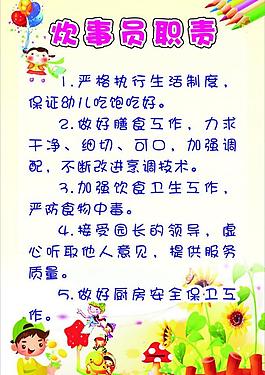 炊事员职责
1.严格执行生活制度，
保证幼儿吃饱吃好。
2.做好膳食工作，力求
干净、细切、可口，加强调
配，不断改进烹调技术。
3.加强饮食卫生工作，
严防食物中毒。
4.接受园长的领导，虚
心听取他人意见，提供服务
质量。
5.做好厨房安全保卫工
作。